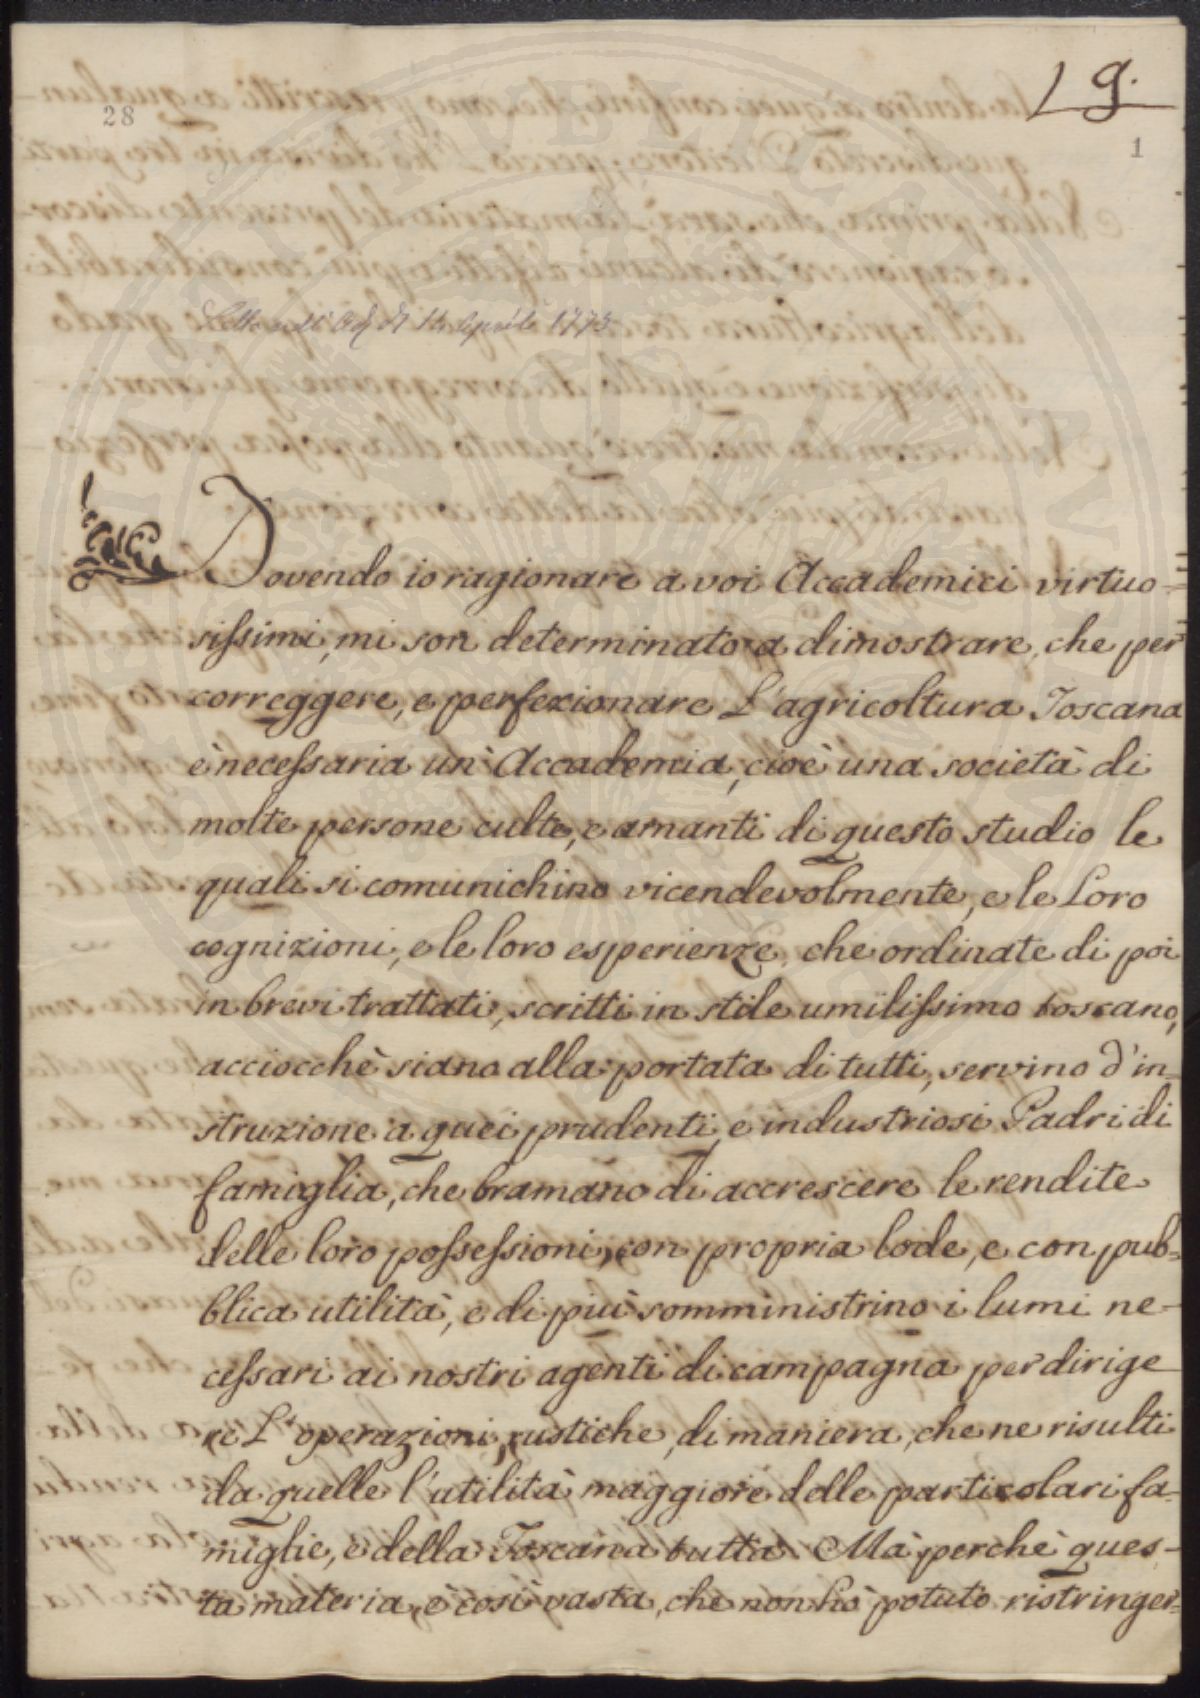 28
L 9.
1
Letta nell' Ad. di 14 Aprile 1773
Dovendo io ragionare a voi Accademici virtuo-
sissimi, mi son determinato a dimostrare, che per
correggere, e perfezionare L'agricoltura Toscana
è necessaria un' Accademia, cioè una società di
molte persone culte, e amanti di questo studio le
quali si comunichino vicendevolmente, e le Loro
cognizioni, e le loro esperienze, che ordinate di poi
in brevi trattati, scritti in stile umilissimo toscano,
acciocchè siano alla portata di tutti, servino d'in-
struzione a quei prudenti, e industriosi Padri di
famiglia, che bramano di accrescere le rendite
delle loro possessioni, con propria lode, e con pub-
blica utilità, e di più somministrino i lumi ne-
cessari ai nostri agenti di campagna per dirige
re L' operazioni rustiche, di maniera, che ne risulti
da quelle l'utilità maggiore delle particolari fa-
miglie, e della Toscana tutta. Mà perchè ques-
ta materia, è così vasta, che non hò potuto ristringer-